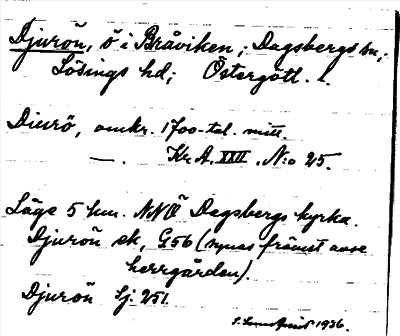 Djurön, ö i Bråviken; Dagsbergs sn,;
Lösings hd; Östergötl. l.
Diurö, omkr. 1700-tal. mitt.
—. Kr. A. XXII. N:o 25.
Läge 5 km. NNÖ Dagsbergs kyrka.
Djurön ek, G56 (synes främst avse
herrgården).
Djurön Sj. 251.
1936.